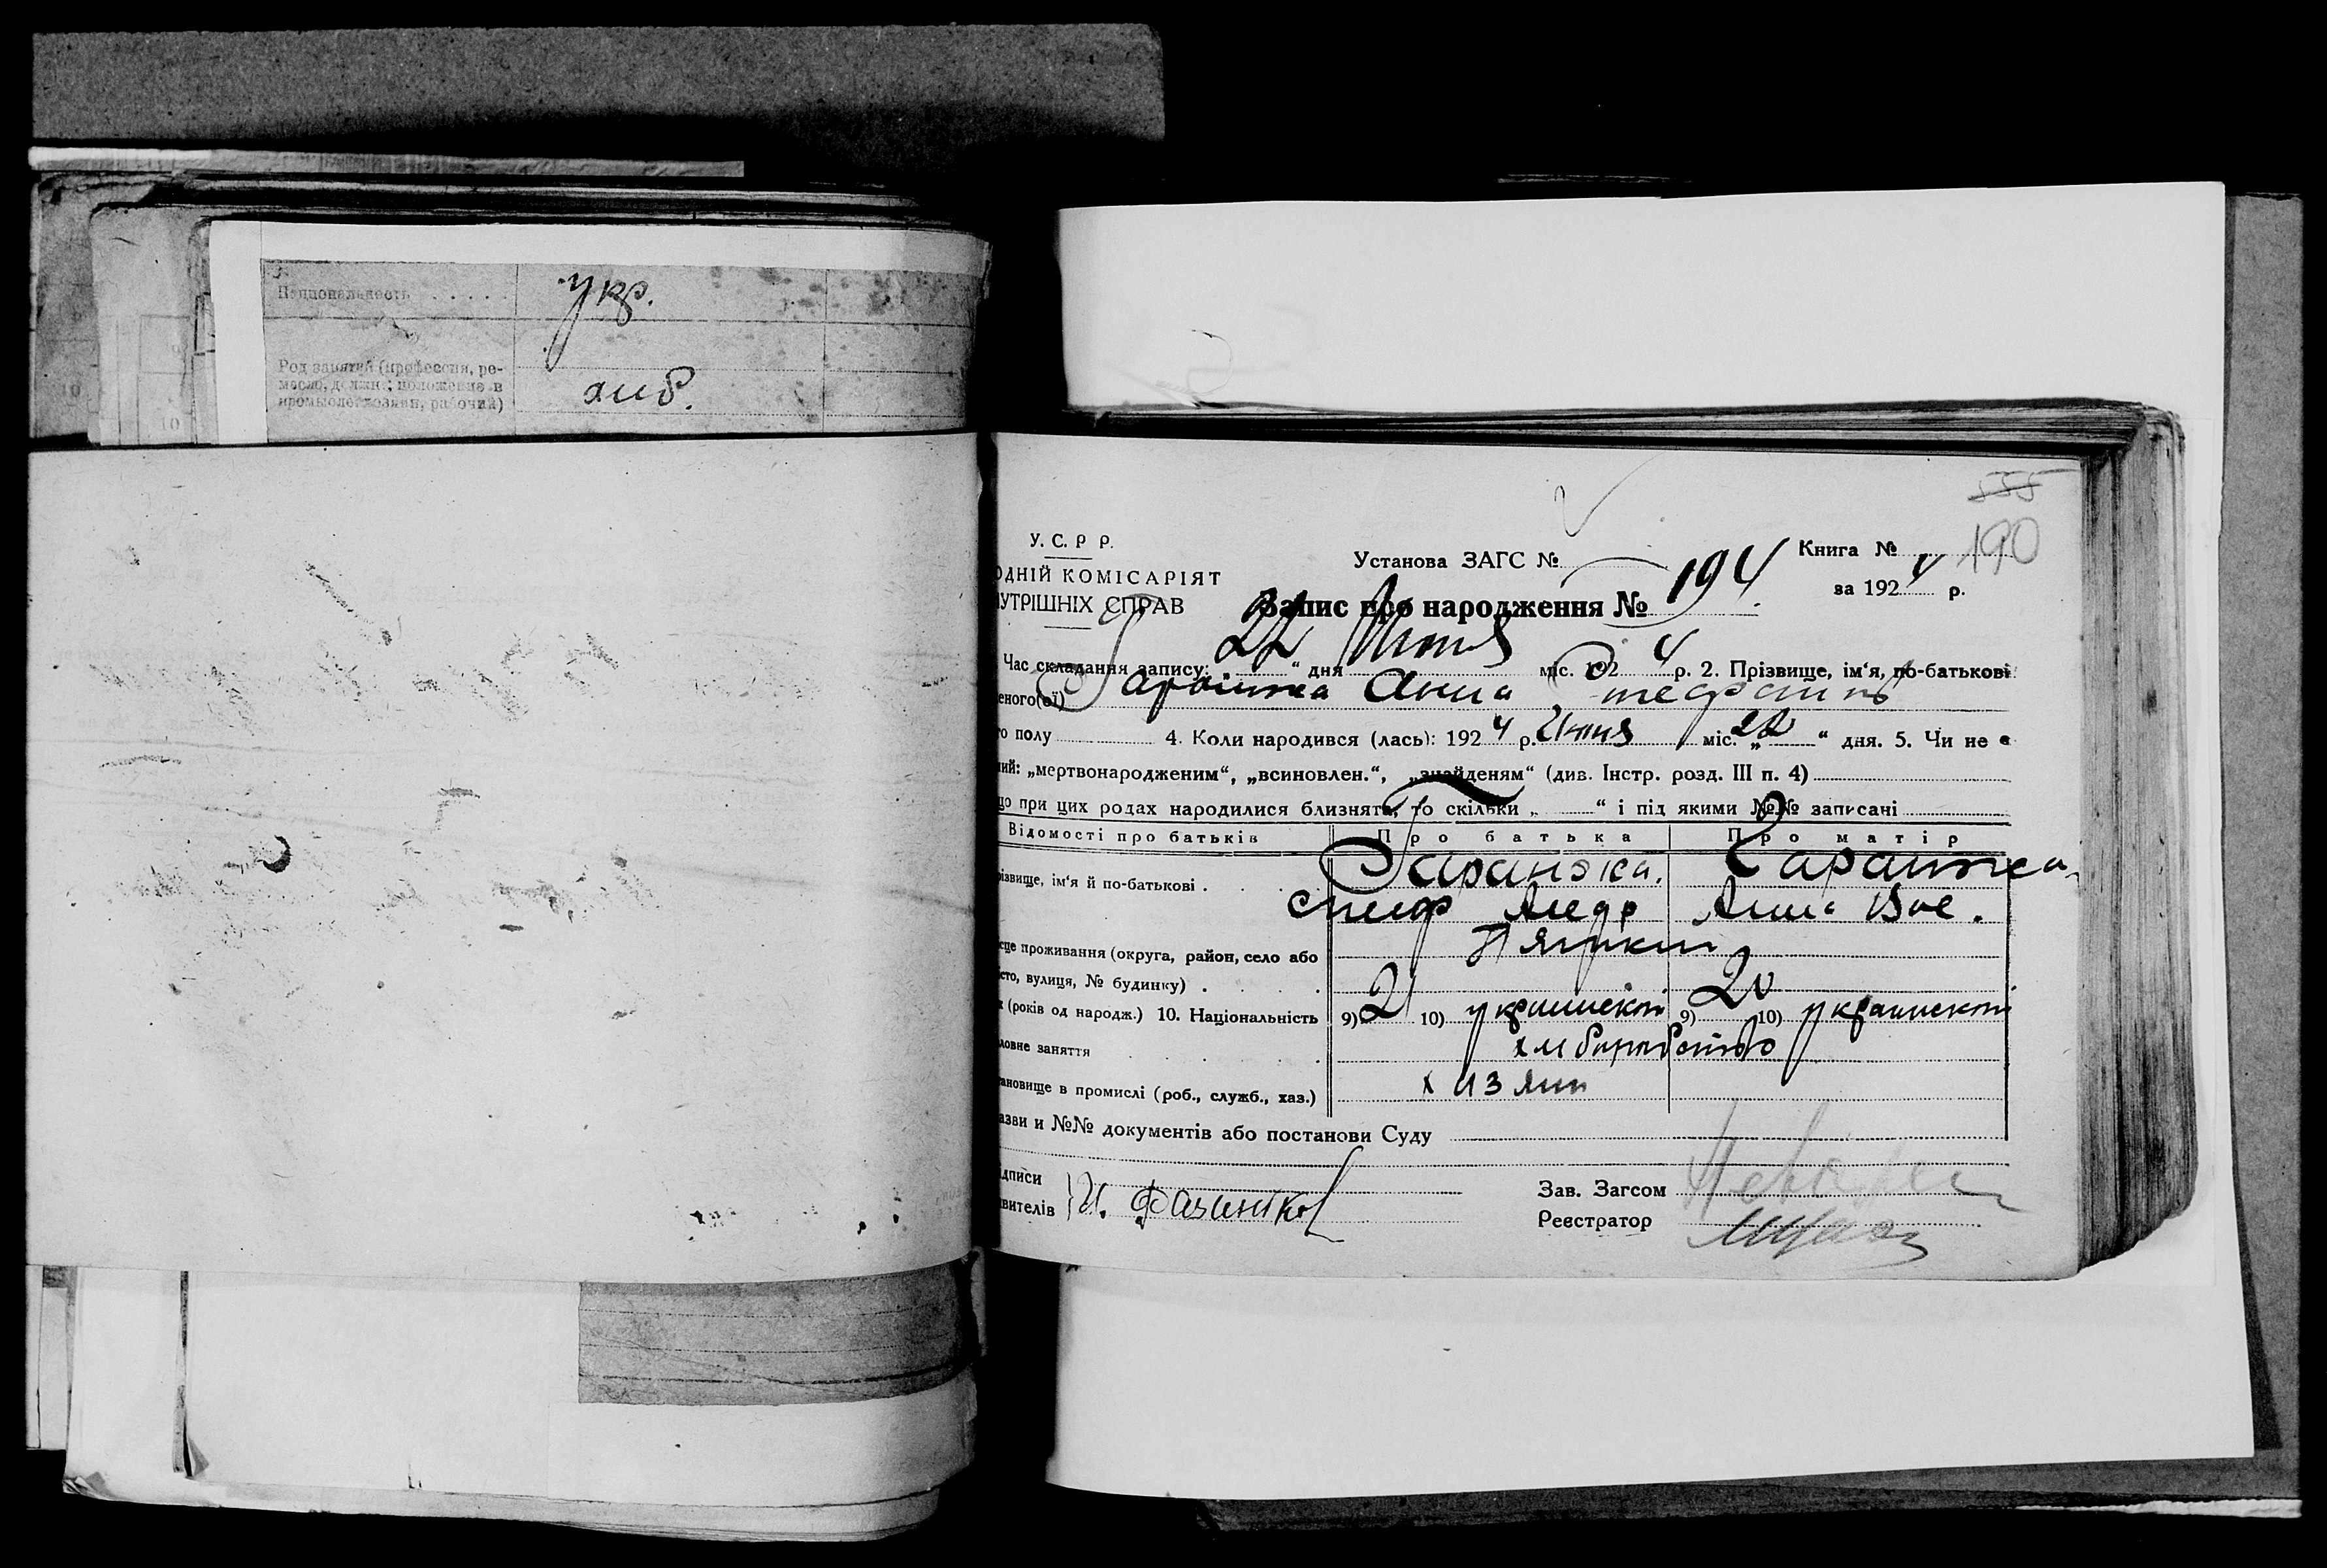 Национальность укр.
Род занятий (профессия, ре-
месло, должн.; положение в
промысле: хозяин, рабочий) хлиб.
555
190
У. С. Р Р.
Установа ЗАГС №
Книга №
ОДНІЙ КОМІСАРІЯТ
за 1924 р.
УТРІШНІХ СПРАВ
Запис про народження № 194
Час складання запису: 22 “ дня Июня міс. 1924 р. 2. Прізвище, ім‘я, по-батькові
еного(ої) Гарашка Анна
го полу 4. Коли народився (лась): 1924 р. Июня міс. „ 22 “ дня. 5. Чи не є
ний: „мертвонародженим“, „всиновлен.“, „знайденям“ (див. Інстр. розд. III п. 4)
що при цих родах народилися близнята, то скільки „ “ і під якими №№ записані
Відомості про батьків Про батька Про матір
різвище, ім‘я й по-батькові . Гаранжа.
Анна Вас.
сце проживання (округа, район, село або
сто, вулиця, № будинку) .
к (років од народж.) 10. Національність 9) 21 10) украинской 9) 20 10) украинской
ловне заняття хлиборобство
ановище в промислі (роб., служб., хаз.) хазяин
азви и №№ документів або постанови Суду
ідписи
Зав. Загсом
явителів И.
Реєстратор